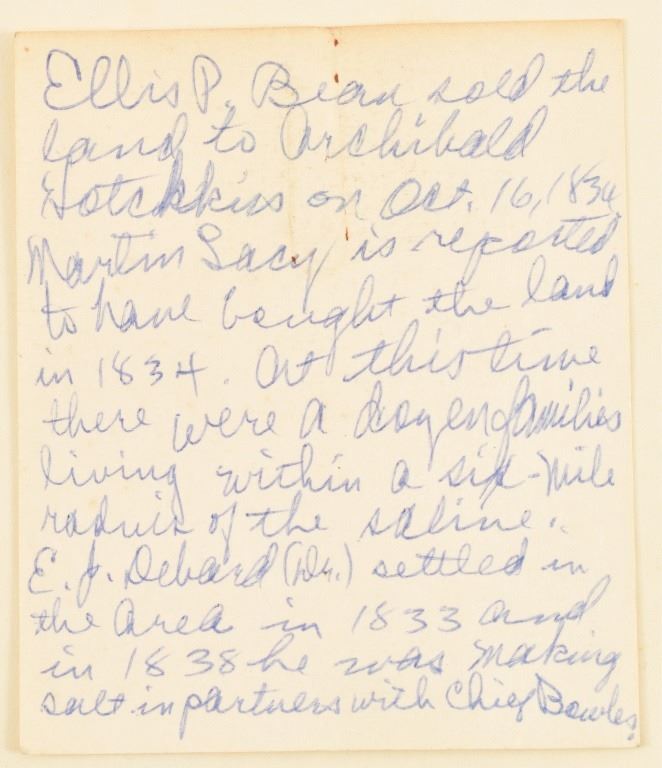 Ellis P. Bean sold the
land to Archibald
Hotchkiss on Oct. 16, 1834
Martin Lacy is reported
to have bought the land
in 1834. At this time
there were a dozen families
living within a six-mile
radius of the saline.
E. J. Debard (Dr.) settled in
the area in 1833 and
in 1838 he was making
salt in partners with Chief Bowles.